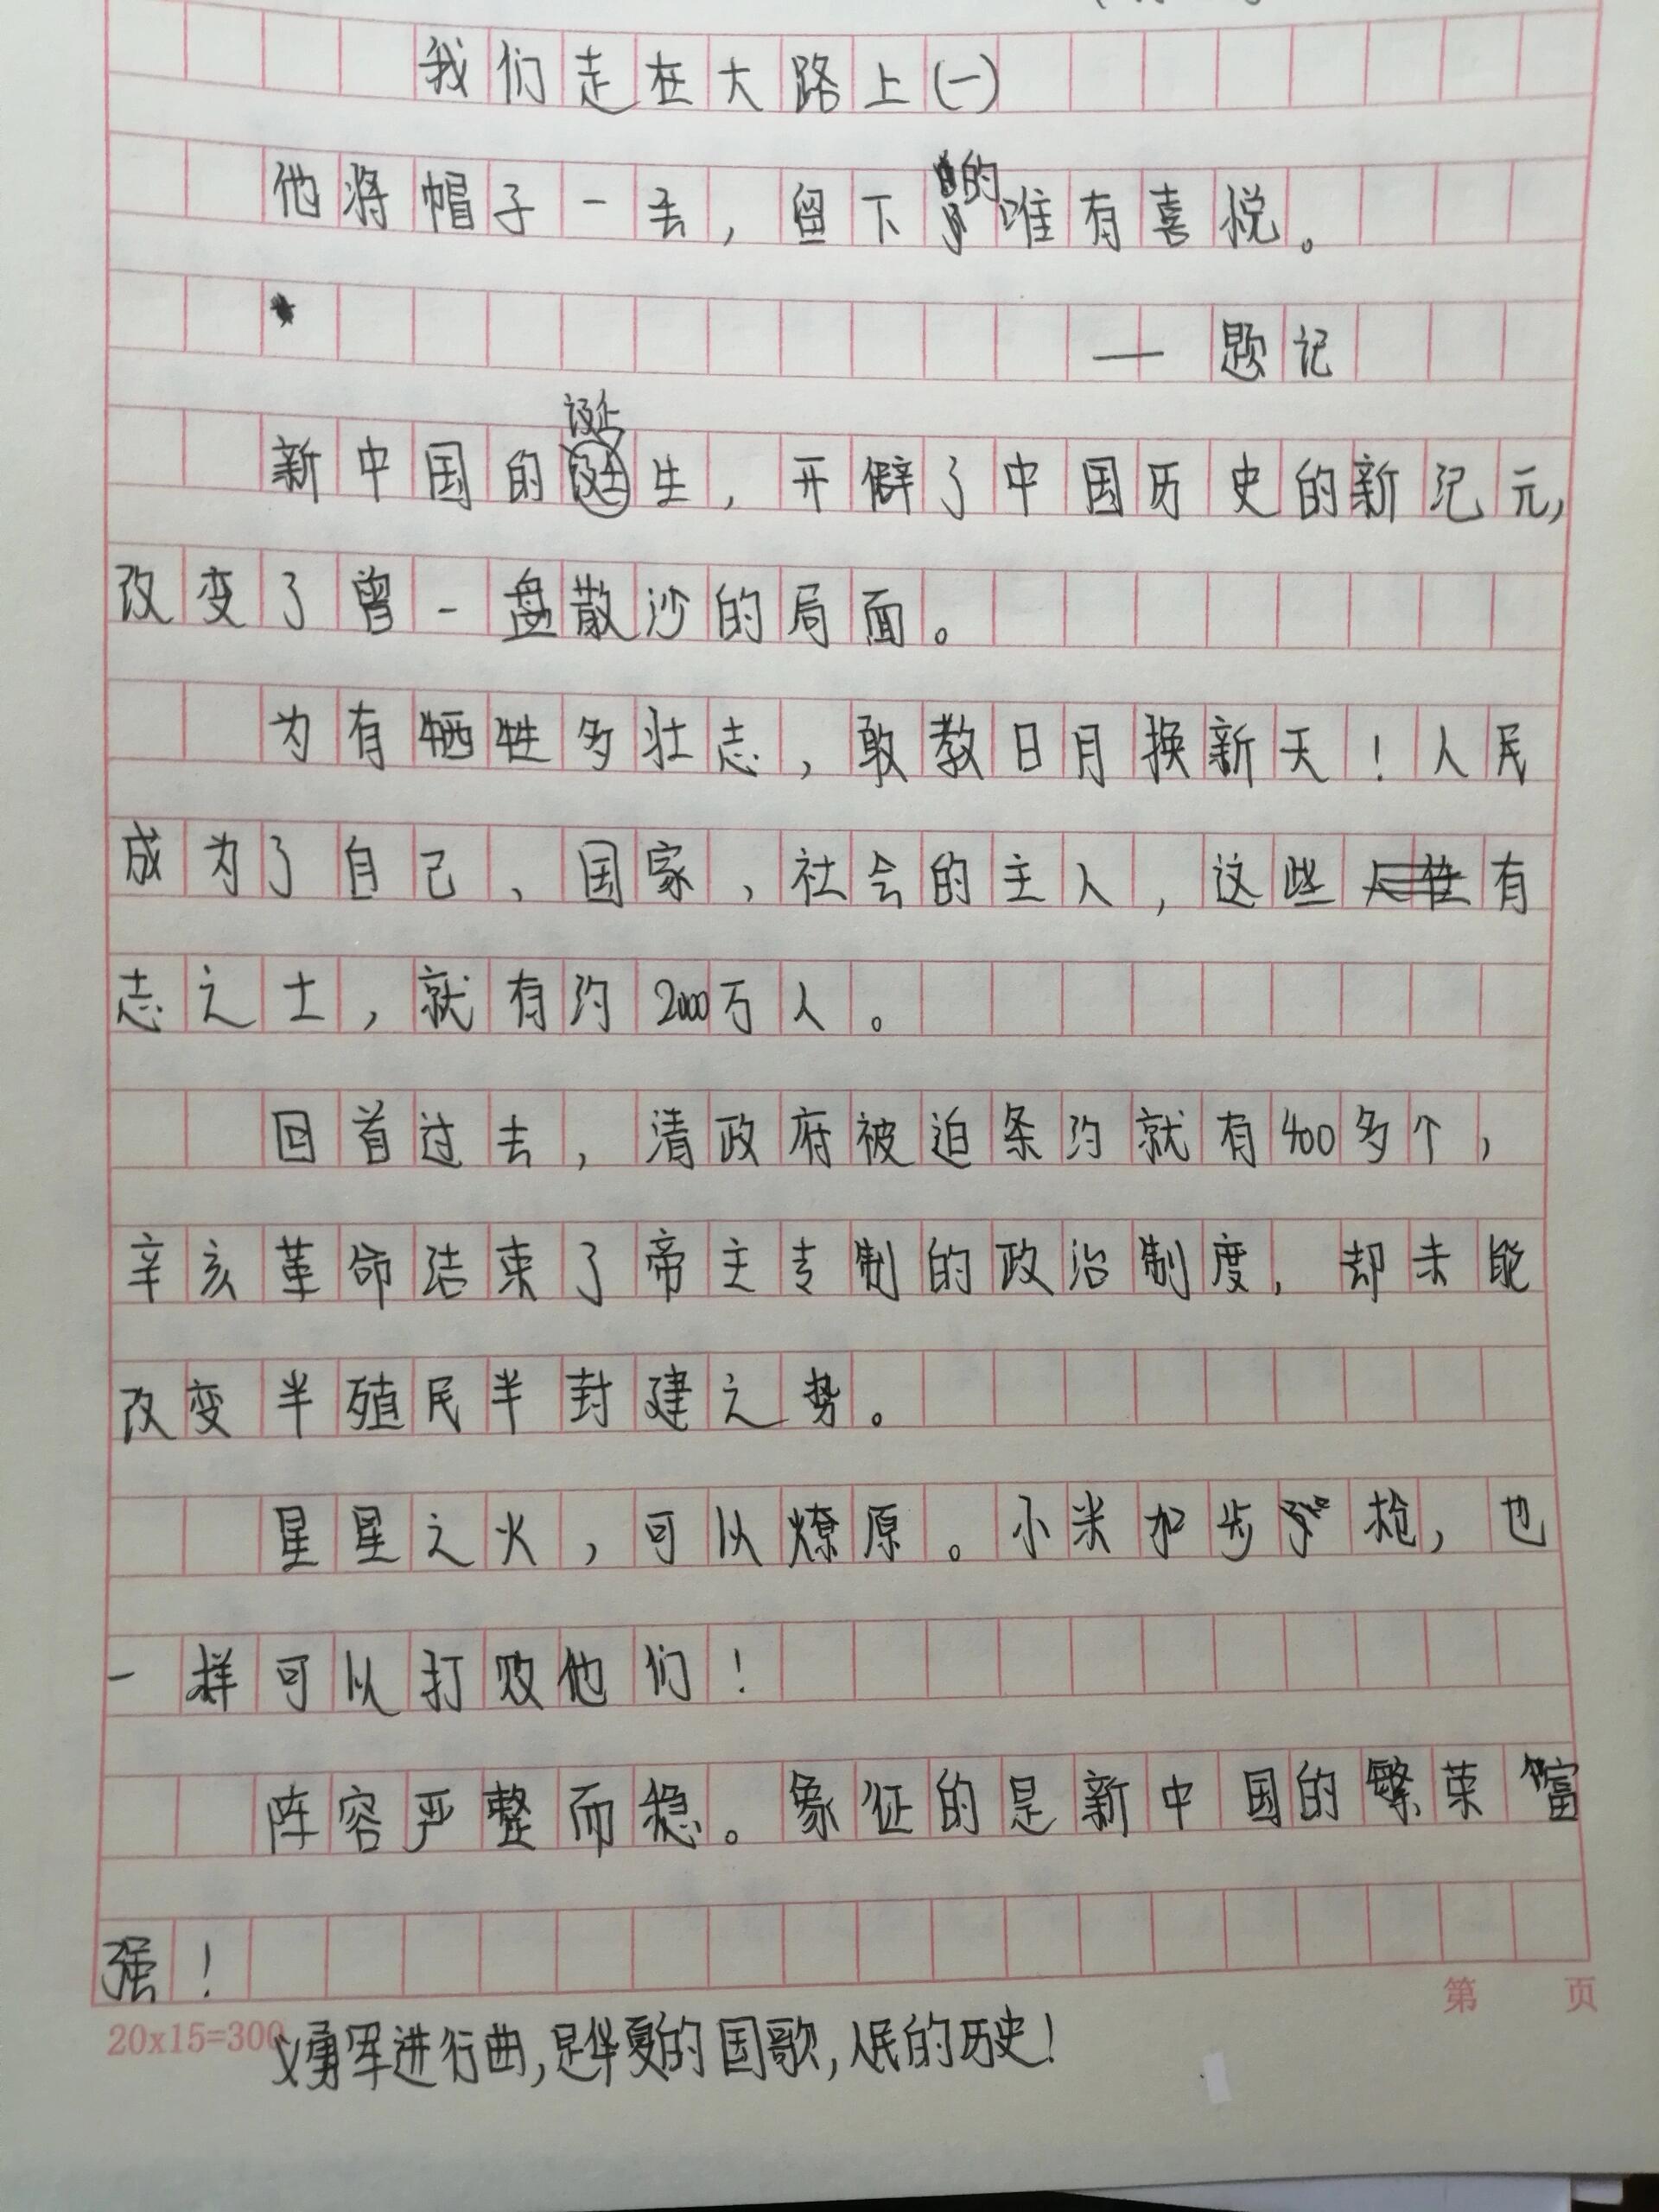 我们走在大路上(一)
他将帽子一丢,留下的唯有喜悦。
——题记
新中国的诞生,开僻了中国历史的新纪元,
改变了曾一盘散沙的局面。
为有牺牲多壮志,敢教日月换新天!人民
成为了自己、国家、社会的主人,这些有
志之士,就有约2000万人。
回首过去,清政府被迫条约就有400多个,
辛亥革命结束了帝主专制的政治制度,却未能
改变半殖民半封建之势。
星星之火,可以燎原。小米加步枪,也
一样可以打败他们!
阵容严整而稳。象征的是新中国的繁荣富
强!
第 页
20x15=300
义勇军进行曲,是华夏的国歌,人民的历史!